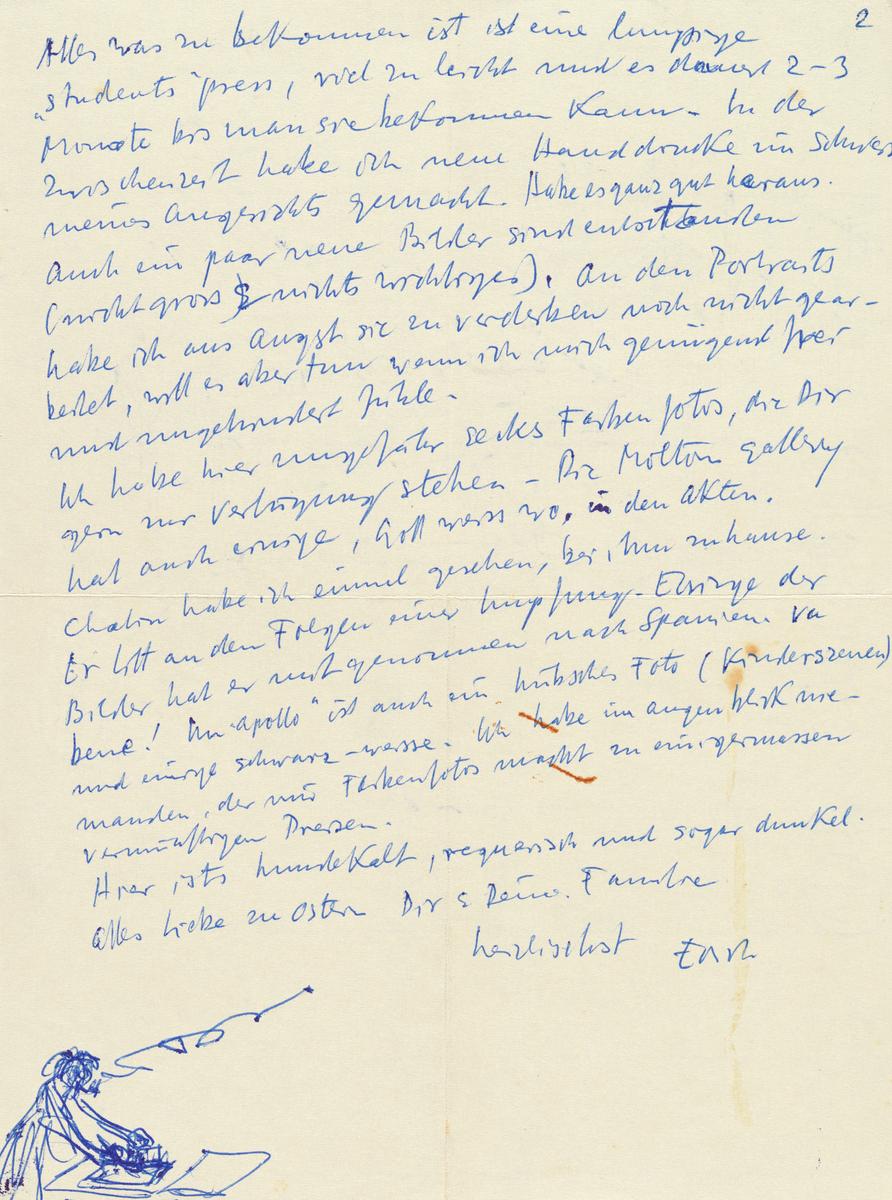 2
Alles was zu bekommen ist ist eine lumpige
„students" press, viel zu leicht und es dauert 2-3
Monate bis man sie bekommen kann. In der
Zwischenzeit habe ich neue Handdrucke im Schweiss
meines Angesichts gemacht. Habe es ganz gut heraus.
Auch ein paar neue Bilder sind entstanden
(nicht gross & nichts wichtiges). An den Portraits
habe ich aus Angst sie zu verderben noch nicht gear-
beitet, will es aber tun wenn ich mich genügend frei
und ungehindert fühle.
Ich habe hier ungefähr sechs Farbenfotos, die Dir
gern zur Verfügung stehen - Die Molton gallery
hat auch einige, Gott weiss wo, in den Akten.
habe ich einmal gesehen, bei ihm zuhause.
Er litt an den Folgen einer Impfung. Einige der
Bilder hat er mitgenommen nach Spanien.
! Im „Apollo" ist auch ein hübsches Foto (Kinderszenen)
und einige schwarz-weisse. Ich habe im augenblick nie-
manden, der mir Farbenfotos macht zu einigermassen
vernünftigen Preisen.
Hier ists hundekalt, regnerisch und sogar dunkel.
Alles Liebe zu Ostern Dir & Deine. Familie
herzlichst Erich